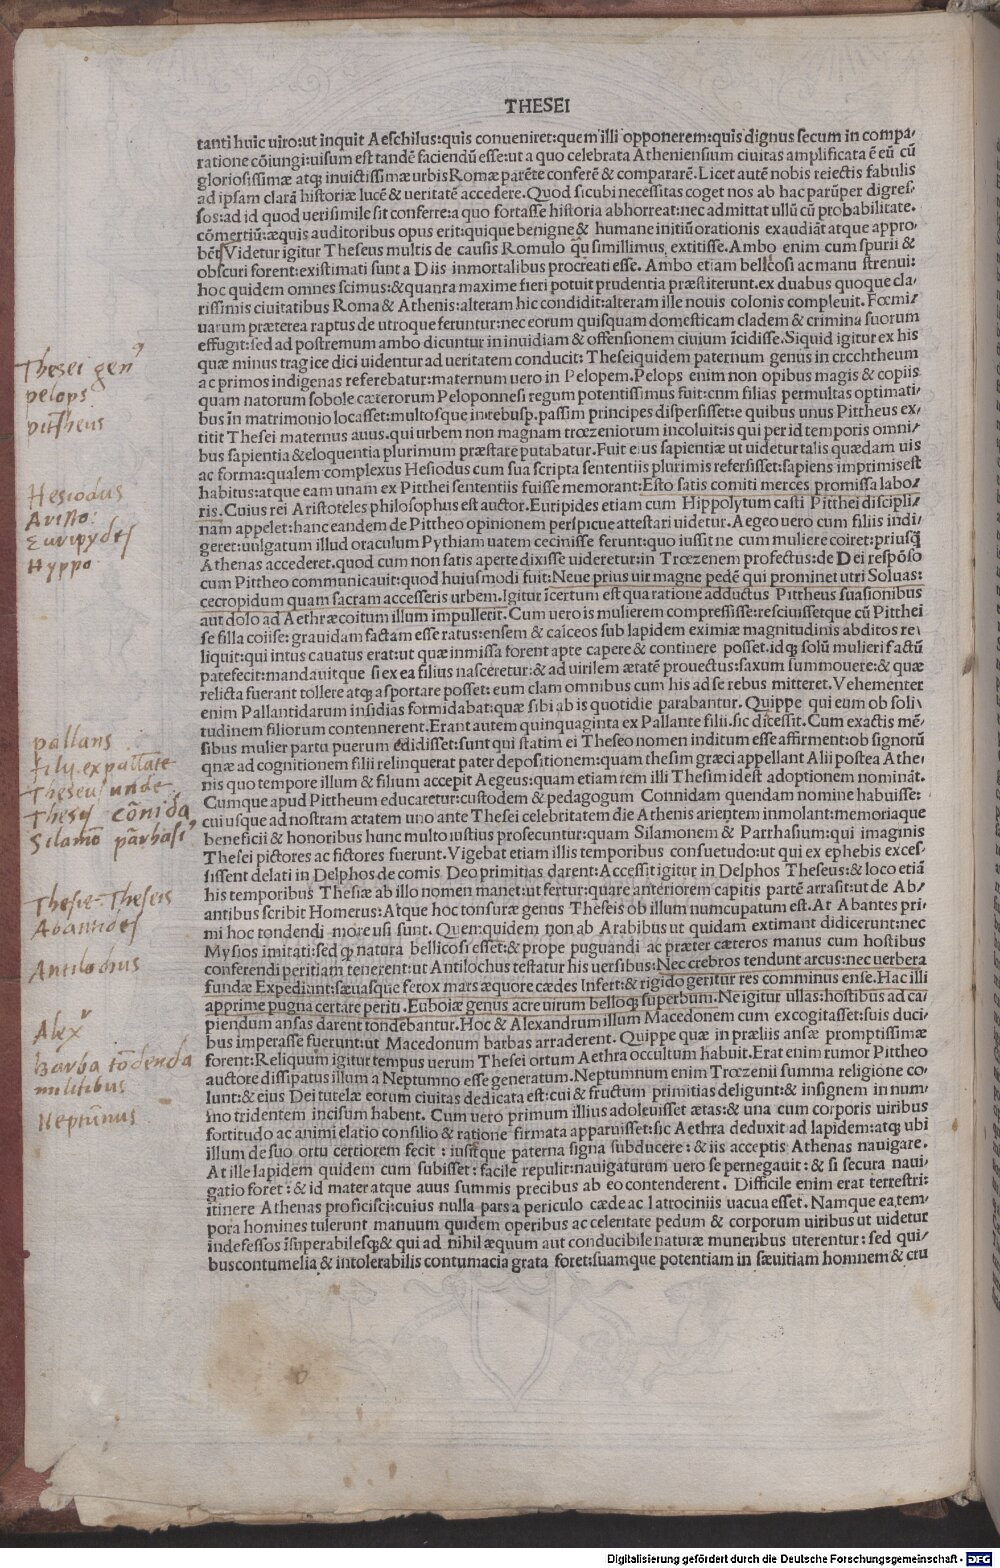 THESEI
tanti huic uiro:ut inquit Aeschilus:quis conueniret:quem illi opponerem:quis dignus secum in compa/
ratione cōiungi:uisum est tandē faciendū esse:ut a quo celebrata Atheniensium ciuitas amplificata ē eū cū
gloriosissimæ atq; inuictissimæ urbis Romæ parēte conferē & compararē. Licet autē nobis reiectis fabulis
ad ipsam clarā historiæ lucē & ueritatē accedere. Quod sicubi necessitas coget nos ab hac parūper digres/
sos:ad id quod uerisimile sit conferre:a quo fortasse historia abhorreat:nec admittat ullū cū probabilitate.
cōmertiū:æquis auditoribus opus erit:quique benigne & humane initiū orationis exaudiāt atque appro/
bēt. Videtur igitur Theseus multis de causis Romulo q̄ simillimus extitisse. Ambo enim cum spurii &
obscuri forent:existimati sunt a Diis inmortalibus procreati esse. Ambo etiam bellicosi ac manu strenui:
hoc quidem omnes scimus:& quanta maxime fieri potuit prudentia præstiterunt.ex duabus quoque cla/
rissimis ciuitatibus Roma & Athenis:alteram hic condidit:alteram ille nouis colonis compleuit. Fœmi/
uarum præterea raptus de utroque feruntur:nec eorum quisquam domesticam cladem & crimina suorum
effugit:sed ad postremum ambo dicuntur in inuidiam & offensionem ciuium īcidisse. Siquid igitur ex his
quæ minus tragice dici uidentur ad ueritatem conducit: Thesei quidem paternum genus in ercchtheum
ac primos indigenas referebatur:maternum uero in Pelopem. Pelops enim non opibus magis & copiis
quam natorum sobole cæterorum Peloponnesi regum potentissimus fuit:cnm filias permultas optimati/
bus in matrimonio locasset:multosque in rebusp. passim principes dispersisset:e quibus unus Pittheus ex/
titit Thesei maternus auus.qui urbem non magnam trœzeniorum incoluit:is qui per id temporis omni/
bus sapientia & eloquentia plurimum præstare putabatur. Fuit eius sapientiæ ut uidetur talis quædam uis
ac forma:qualem complexus Hesiodus cum sua scripta sententiis plurimis refersisset:sapiens imprimis est
habitus:atque eam unam ex Pitthei sententiis fuisse memorant: Esto satis comiti merces promissa labo/
ris. Cuius rei Aristoteles philosophus est auctor. Euripides etiam cum Hippolytum casti Pitthei discipli/
nam appelet:hanc eandem de Pittheo opinionem perspicue attestari uidetur. Aegeo uero cum filiis indi/
geret:uulgatum illud oraculum Pythiam uatem cecinisse ferunt:quo iussit ne cum muliere coiret:priusq̄
Athenas accederet.quod cum non satis aperte dixisse uideretur:in Trœzenem profectus:de Dei respōso
cum Pittheo communicauit:quod huiusmodi fuit: Neue prius uir magne pedē qui prominet utri Soluas:
cecropidum quam sacram accesseris urbem. Igitur īcertum est qua ratione adductus Pittheus suasionibus
aut dolo ad Aethræ coitum illum impullerit. Cum uero is mulierem compressisse:resciuissetque cū Pitthei
se filla coiise:grauidam factam esse ratus:ensem & calceos sub lapidem eximiæ magnitudinis abditos re\
liquit:qui intus cauatus erat:ut quæ inmissa forent apte capere & continere posset.idq; solū mulieri factū
patefecit:mandauitque si ex ea filius nasceretur:& ad uirilem ætatē prouectus:saxum summouere:& quæ
relicta fuerant tollere atq; asportare posset: eum clam omnibus cum his ad se rebus mitteret. Vehementer
enim Pallantidarum insidias formidabat:quæ sibi ab is quotidie parabantur. Quippe qui eum ob soli\
tudinem filiorum contennerent. Erant autem quinquaginta ex Pallante filii. sic dicessit. Cum exactis mē/
sibus mulier partu puerum edidisset:sunt qui statim ei Theseo nomen inditum esse affirment:ob signorū
qnæ ad cognitionem filii relinquerat pater depositionem:quam thesim græci appellant Alii postea Athe/
nis quo tempore illum & filium accepit Aegeus:quam etiam rem illi Thesim id est adoptionem nomināt.
Cumque apud Pittheum educaretur:custodem & pedagogum Connidam quendam nomine habuisse:
cui usque ad nostram ætatem uno ante Thesei celebritatem die Athenis arietem inmolant:memoriaque
beneficii & honoribus hunc multo iustius prosecuntur:quam Silamonem & Parrhasium:qui imaginis
Thesei pictores ac fictores fuerunt. Vigebat etiam illis temporibus consuetudo:ut qui ex ephebis exces/
sissent delati in Delphos de comis Deo primitias darent: Accessit igitur in Delphos Theseus:& loco etiā
his temporibus Thesiæ ab illo nomen manet:ut fertur:quare anteriorem capitis partē arrasit:ut de Ab/
antibus scribit Homerus: Atque hoc tonsuræ genus Theseis ob illum numcupatum est. At Abantes pri/
mi hoc tondendi more usi sunt. Quem quidem non ab Arabibus ut quidam extimant didicerunt:nec
Mysios imitati:sed q; natura bellicosi essēt:& prope puguandi ac præter cæteros manus cum hostibus
conferendi peritiam tenerent:ut Antilochus testatur his uersibus: Nec crebros tendunt arcus:nec uerbera
fundæ Expediunt:sæuasque ferox mars æquore cædes Infert:& rigido geritur res comminus ense. Hac illi
apprime pugna certare periti. Euboiæ genus acre uirum belloq; superbum. Ne igitur ullas:hostibus ad ca/
piendum ansas darent tondebantur. Hoc & Alexandrum illum Macedonem cum excogitasset:suis duci/
bus imperasse fuerunt:ut Macedonum barbas arraderent. Quippe quæ in præliis ansæ promptissimæ
forent: Reliquum igitur tempus uerum Thesei ortum Aethra occultum habuit. Erat enim rumor Pittheo
auctore dissipatus illum a Neptumno esse generatum. Neptumnum enim Trœzenii summa religione co/
lunt:& eius Dei tutelæ eorum ciuitas dedicata est:cui & fructum primitias deligunt:& insignem in num/
mo tridentem incisum habent. Cum uero primum illius adoleuisset ætas:& una cum corporis uiribus
fortitudo ac animi elatio consilio & ratione firmata apparuisset:sic Aethra deduxit ad lapidem:atq; ubi
illum de suo ortu certiorem fecit : iussitque paterna signa subducere : & iis acceptis Athenas nauigare.
At ille lapidem quidem cum subisset : facile repulit:nauigaturum uero se pernegauit : & si secura naui/
gatio foret : & id mater atque auus summis precibus ab eo contenderent. Difficile enim erat terrestri:
itinere Athenas proficisci:cuius nulla pars a periculo cæde ac latrociniis uacua esset. Namque ea tem/
pora homines tulerunt manuum quidem operibus ac celeritate pedum & corporum uiribus ut uidetur
indefessos īsuperabilesq;& qui ad nihil æquum aut conducibile naturæ muneribus uterentur : sed qui/
bus contumelia & intolerabilis contumacia grata foret:suamque potentiam in sæuitiam homnem & cru
Thesei gen9
pelops
pittheus
Hesiodus
Aristo:
Euripydes
Hyppo
pallans
filij. ex pallāte
Theseus unde
Thesej cōnida
Silamō pārhasi9
Thesie-Theseis
Abantides
Antilochus
Alexr
Barba tōdenda
militibus
Neptūnus
Digitalisierung gefördert durch die Deutsche Forschungsgemeinschaft - DFG